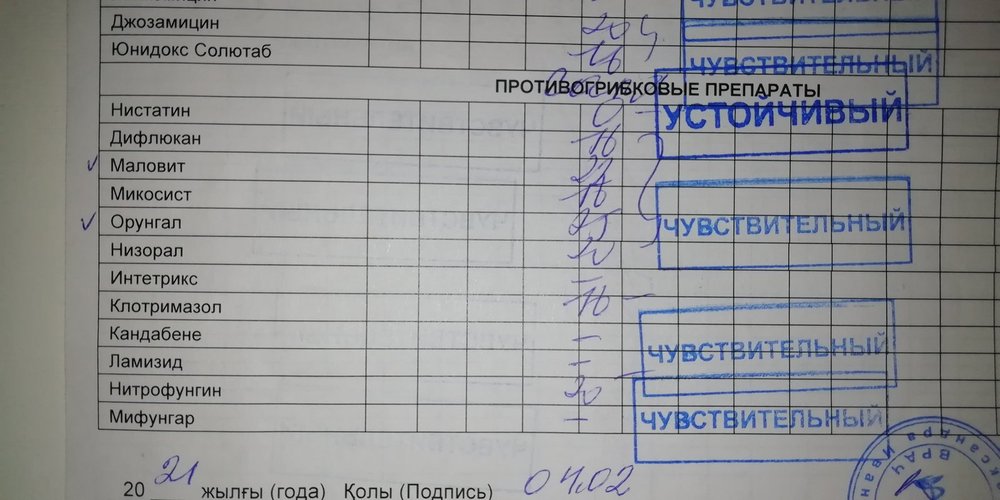 ЧУВСТВИТЕЛЬНЫЙ
Джозамицин 20
Юнидокс Солютаб 16
ЧУВСТВИТЕЛЬНЫЙ
ПРОТИВОГРИБКОВЫЕ ПРЕПАРАТЫ
Нистатин 0 – УСТОЙЧИВЫЙ
Дифлюкан 16
Маловит 22
Микосист 16
Орунгал 25 ЧУВСТВИТЕЛЬНЫЙ
Низорал 20
Интетрикс –
Клотримазол 16 –
Кандабене – ЧУВСТВИТЕЛЬНЫЙ
Ламизид –
Нитрофунгин 20 –
Мифунгар – ЧУВСТВИТЕЛЬНЫЙ
20 21 жылғы (года) Қолы (Подпись) 04.02
ВРАЧ